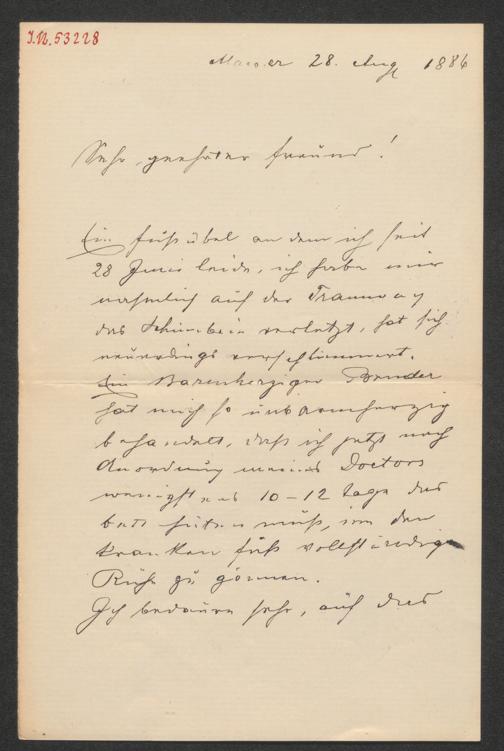 I.N. 53228
28. Aug 1886
Sehr geehrter Freund!
Ein Fußübel an dem ich seit
28 Juni leide, ich habe mir
nahmlich auf der Tramway
das Schinbein verletzt, hat sich
neuerdings verschlimmert.
Ein Barmherziger Bruder
hat mich so unbarmherzig
behandelt, daß ich jetzt nach
Anordnung meines Doctors
wenigstens 10–12 Tage das
Bett hüten muß, um den
kranken Fuß vollständige
Ruhe zu gönnen.
Ich bedaure sehr, auf dies